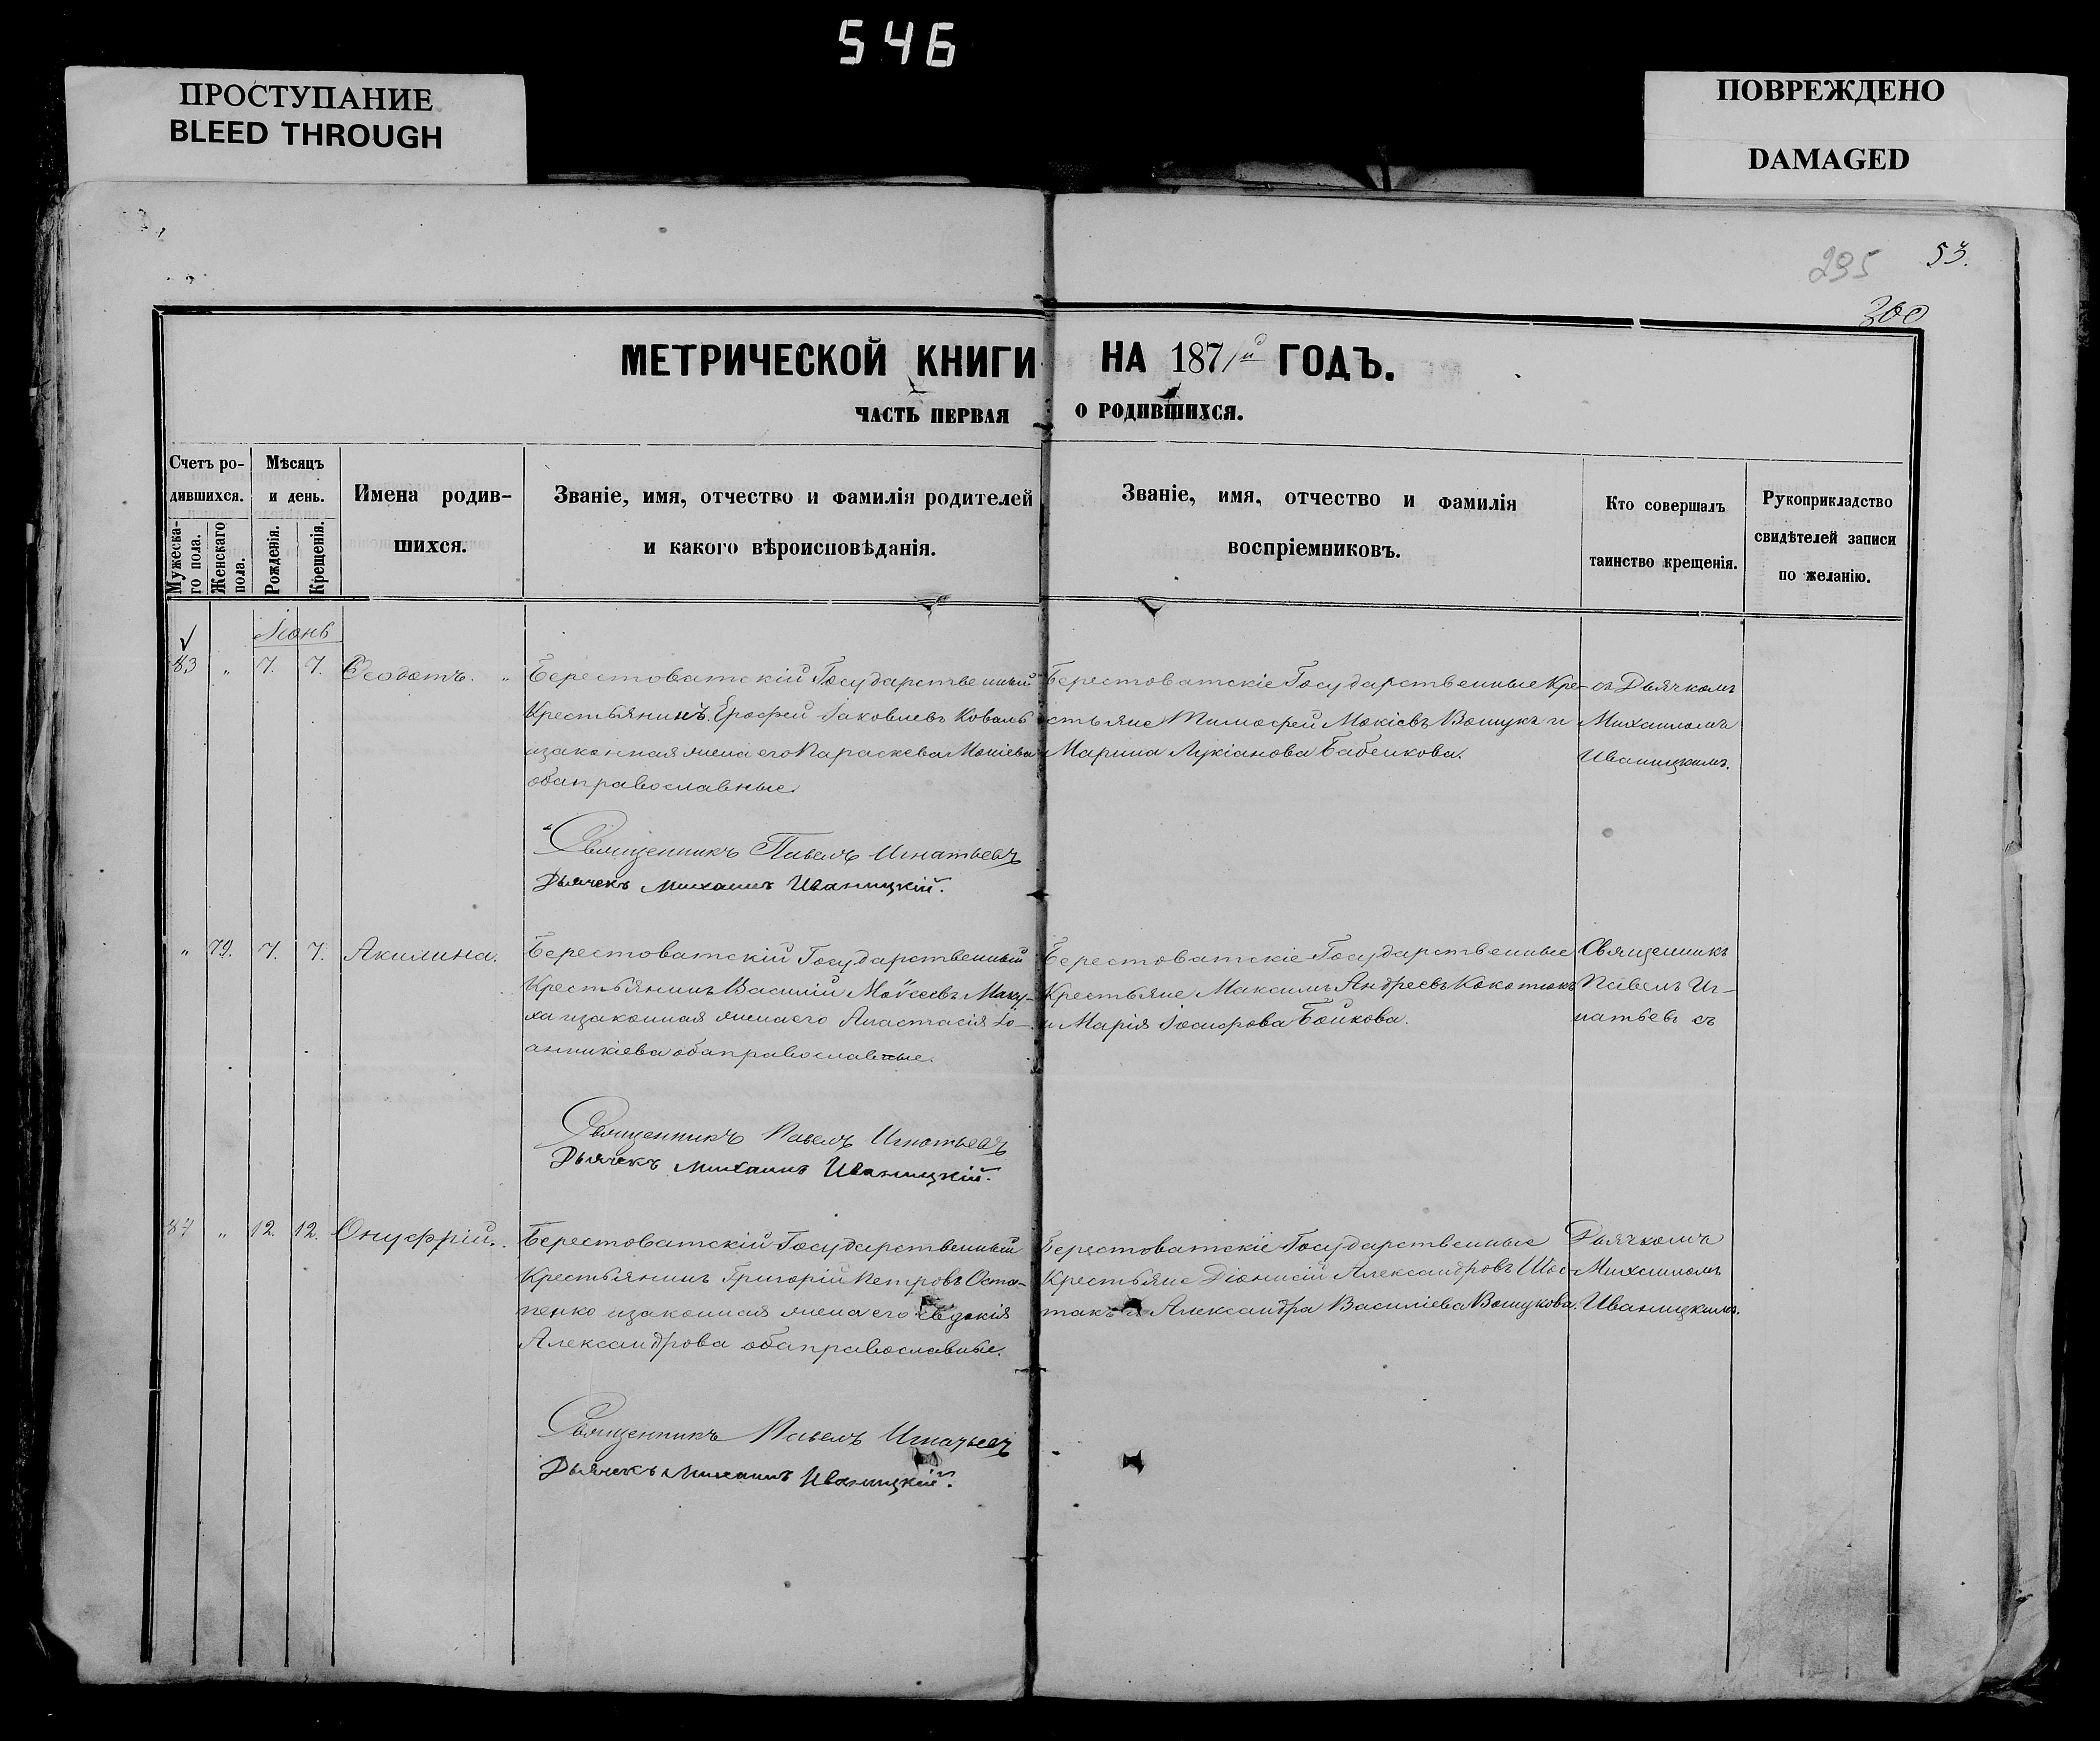 546
ПРОСТУПАНИЕ
BLEED THROUGH
ПОВРЕЖДЕНО
DAMAGED
295 53.
300
МЕТРИЧЕСКОЙ КНИГИ НА 1871й ГОДЪ.
ЧАСТЬ ПЕРВАЯ О РОДИВШИХСЯ.
Счетъ ро-
дившихся.
Мужеска-
го пола.
Женскаго
пола.
Мѣсяцъ
и день.
Рожденія.
Крещенія.
Имена родив-
шихся.
Званіе, имя, отчество и фамилія родителей
и какого вѣроисповѣданія.
Званіе, имя, отчество и фамилія
воспріемниковъ.
Кто совершалъ
таинство крещенія.
Рукоприкладство
свидѣтелей записи
по желанію.
Іюнь
83 „ 7. 7. Ѳеодотъ. „
Берестоватскій Государственный
Крестьянинъ Ерофей Іаковлевъ Коваль
и законная жена его Параскева Мокіева
оба православные.
Берестоватскіе Государственные Кре-
стьяне Тимофей Мокіевъ Вощукъ и
Марина Лукіанова Бабенкова.
съ Дьячкомъ
Михаиломъ
Иваницкимъ.
Священникъ Павелъ Игнатьевъ
Дьячекъ Михаилъ Иваницкій.
„ 79. 7. 7. Акилина.
Берестоватскій Государственный
Крестьянинъ Василій Моѵсеевъ Маку-
ха и законная жена его Анастасія Іо-
анникіева оба православные.
Берестоватскіе Государственные
Крестьяне Максимъ Андреевъ Кокотюкъ
и Марія Іосифова Бойкова.
Священникъ
Павелъ Иг-
натьевъ съ
Священникъ Павелъ Игнатьевъ
Дьячекъ Михаилъ Иваницкій.
84 „ 12. 12. Онуфрій.
Берестоватскій Государственный
Крестьянинъ Григорій Петровъ Оста-
пенко и законная жена его Евдокія
Александрова оба православные.
Берестоватскіе Государственные
Крестьяне Діонисій Александровъ Шос-
такъ и Александра Василіева Вощукова.
Дьячкомъ
Михаиломъ
Иваницкимъ.
Священникъ Павелъ Игнатьевъ
Дьячекъ Михаилъ Иваницкій.